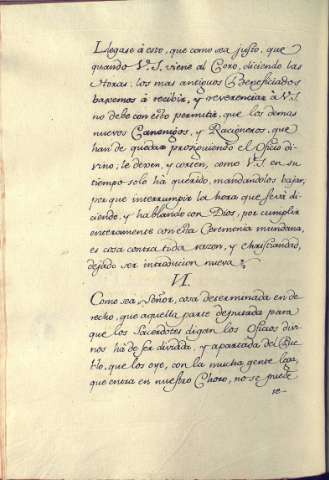 Llegase à esto, que como sea justo, que
quando V.S. viene al Coro, diciendo las
Horas, los mas antiguos Beneficiados
baxemos à recibir, y reverenciar à V.S.
no debe con esto permitir, que los demas
nuevos Canonigos, y Racioneros, que
han de quedar prosiguiendo el Oficio di-
vino, le dexen, y corten, como V.S. en su
tiempo solo ha querido, mandandolos bajar,
porque interrumpir la hora que se và di-
ciendo, y hablando con Dios, por cumplir
enteramente con esta Ceremonia mundana,
es cosa contra toda razon, y Christiandad,
dejado ser introducion nueva.
VI.
Como sea, Señor, cosa determinada en de-
recho, que aquella parte deputada para
que los Sacerdotes digan los Oficios divi-
nos hà de ser dividida, y apartada del Pue-
blo, que los oye, con la mucha gente lega,
que entra en nuestro Choro, no se puede
re-